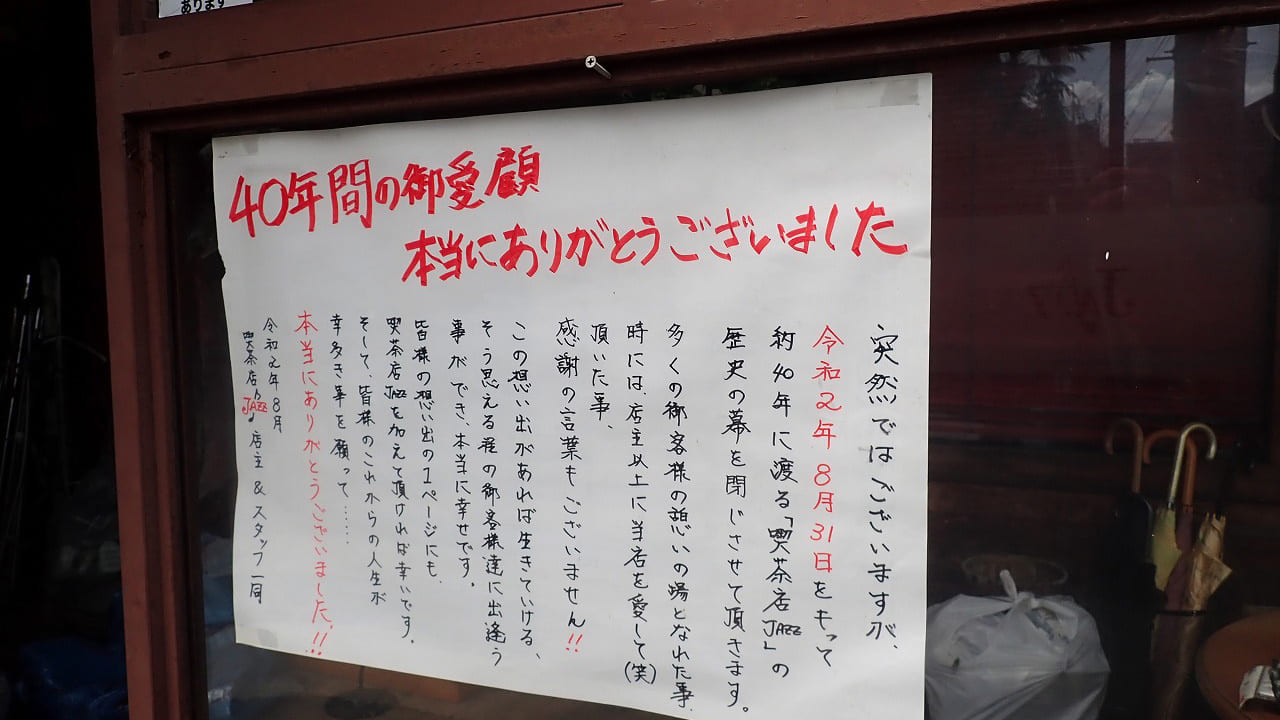 あります
40年間の御愛顧
本当にありがとうございました
突然ではございますが、
令和2年8月31日をもって
約40年に渡る「喫茶店JAZZ」の
歴史の幕を閉じさせて頂きます。
多くの御客様の憩いの場となれた事、
時には、店主以上に当店を愛して(笑)
頂いた事、
感謝の言葉もございません!!
この想い出があれば生きていける、
そう思える程の御客様達に出逢う
事ができ、本当に幸せです。
皆様の想い出の1ページにも、
喫茶店JAZZを加えて頂ければ幸いです。
そして、皆様のこれからの人生が
幸多き事を願って……
本当にありがとうございました!!
令和2年8月
喫茶店JAZZ 店主&スタッフ一同